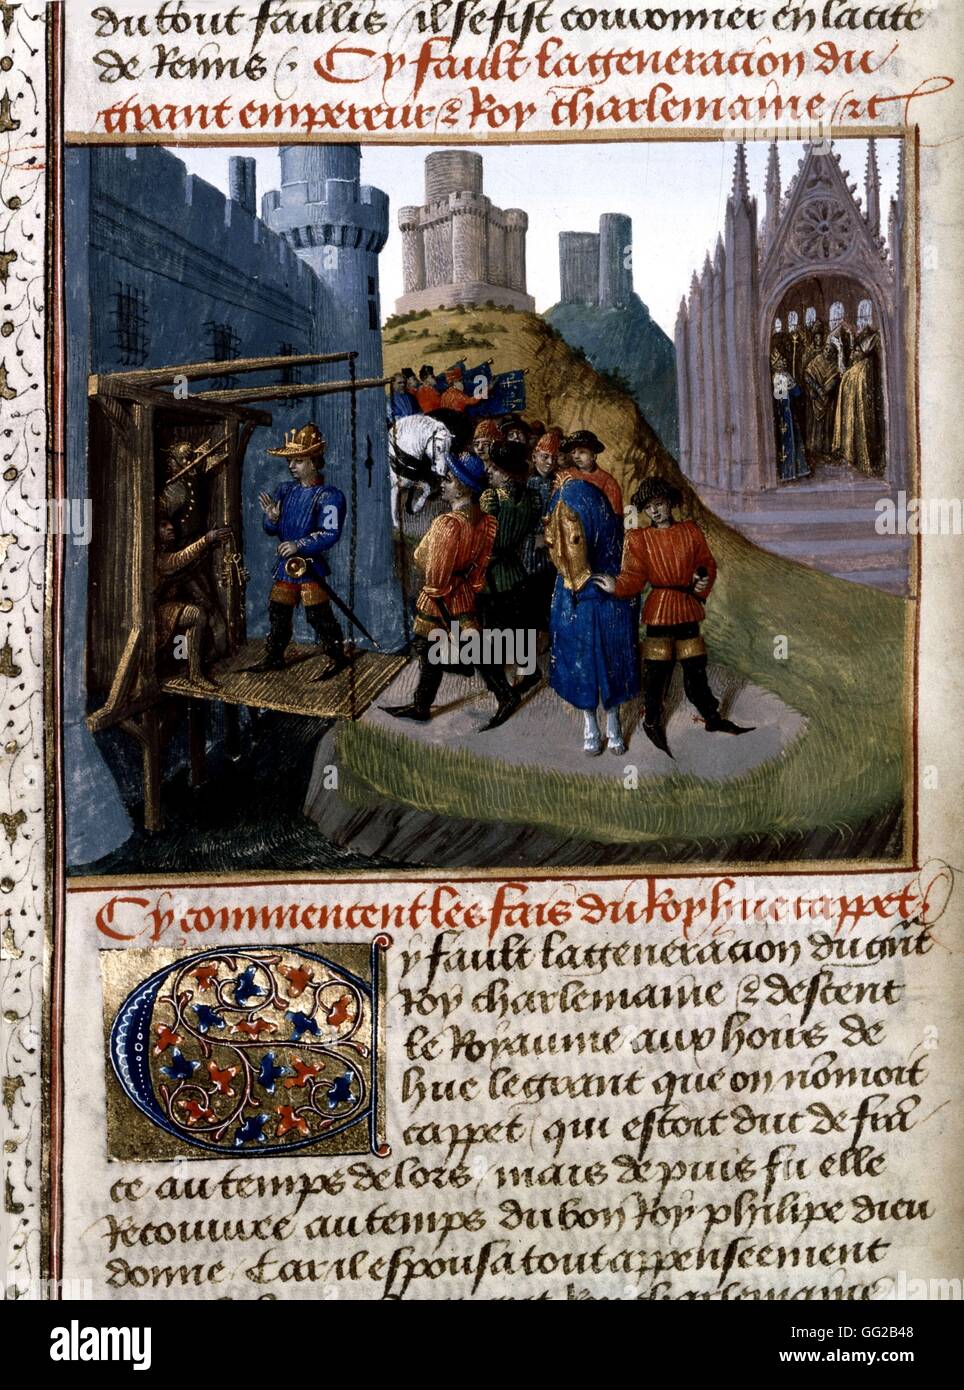 du tout faillis / il se fist couronner en la cite
de Reins . Cy fault la generacion du
grant empereur & Roy charlemaine / &c
Cy commencent les fais du Roy hue cappet .
Cy fault la generacion du grnt
Roy charlemaine & descent
le Royaume aux hoirs de
hue le grant que on nomoit
cappet / qui estoit duc de fran
ce au temps de lors / mais depuis fu elle
Recouvree au temps du bon Roy philipe dieu
donne / Car il espousa tout appenseement
Roy charlemaine
alamy
Image ID: GG2B48
www.alamy.com